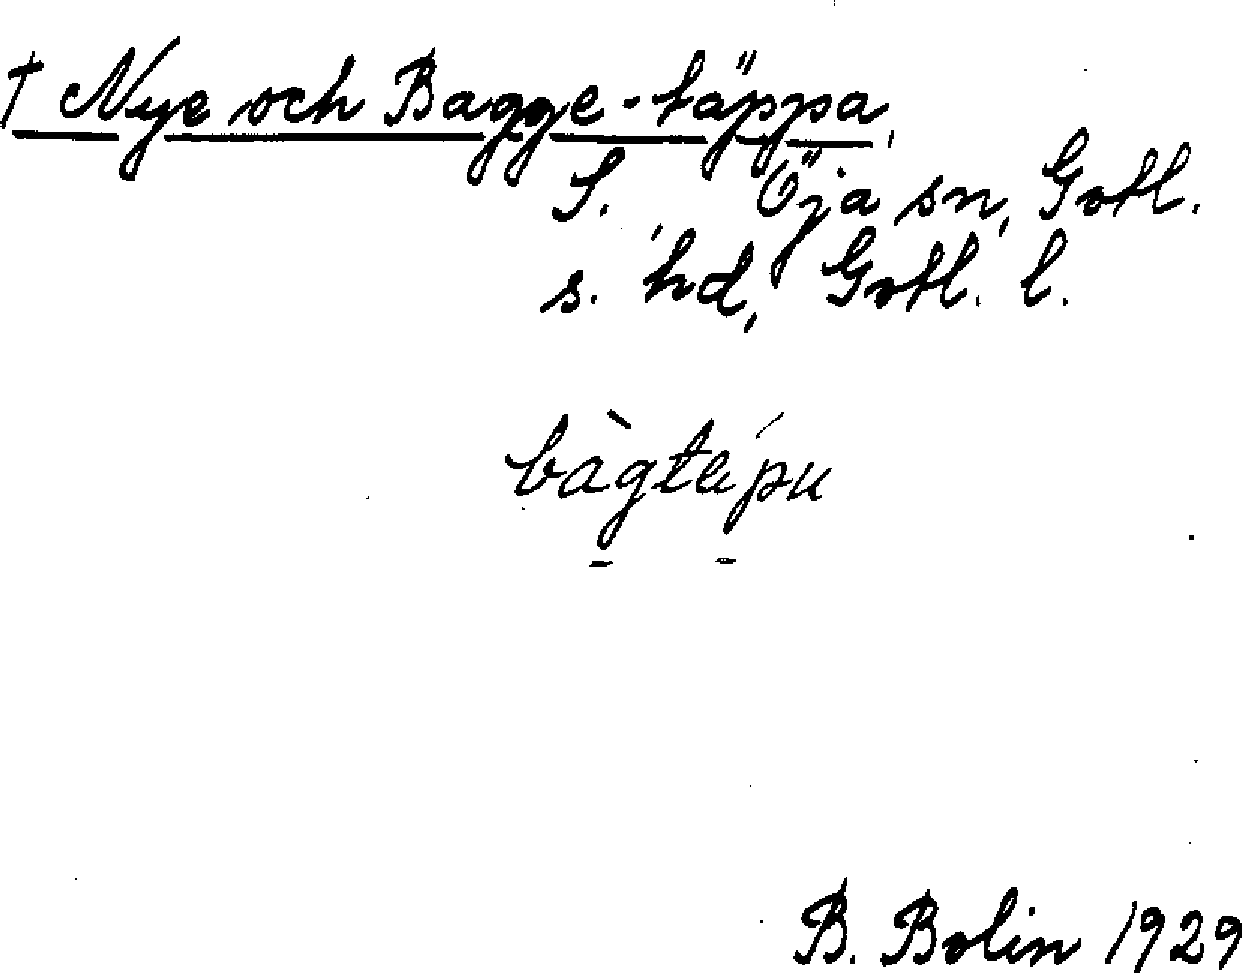 † Nye och Bagge-täppa,
S. Öja sn, Gotl.
s. hd, Gotl. l.
bàgtépu
B. Bolin 1929